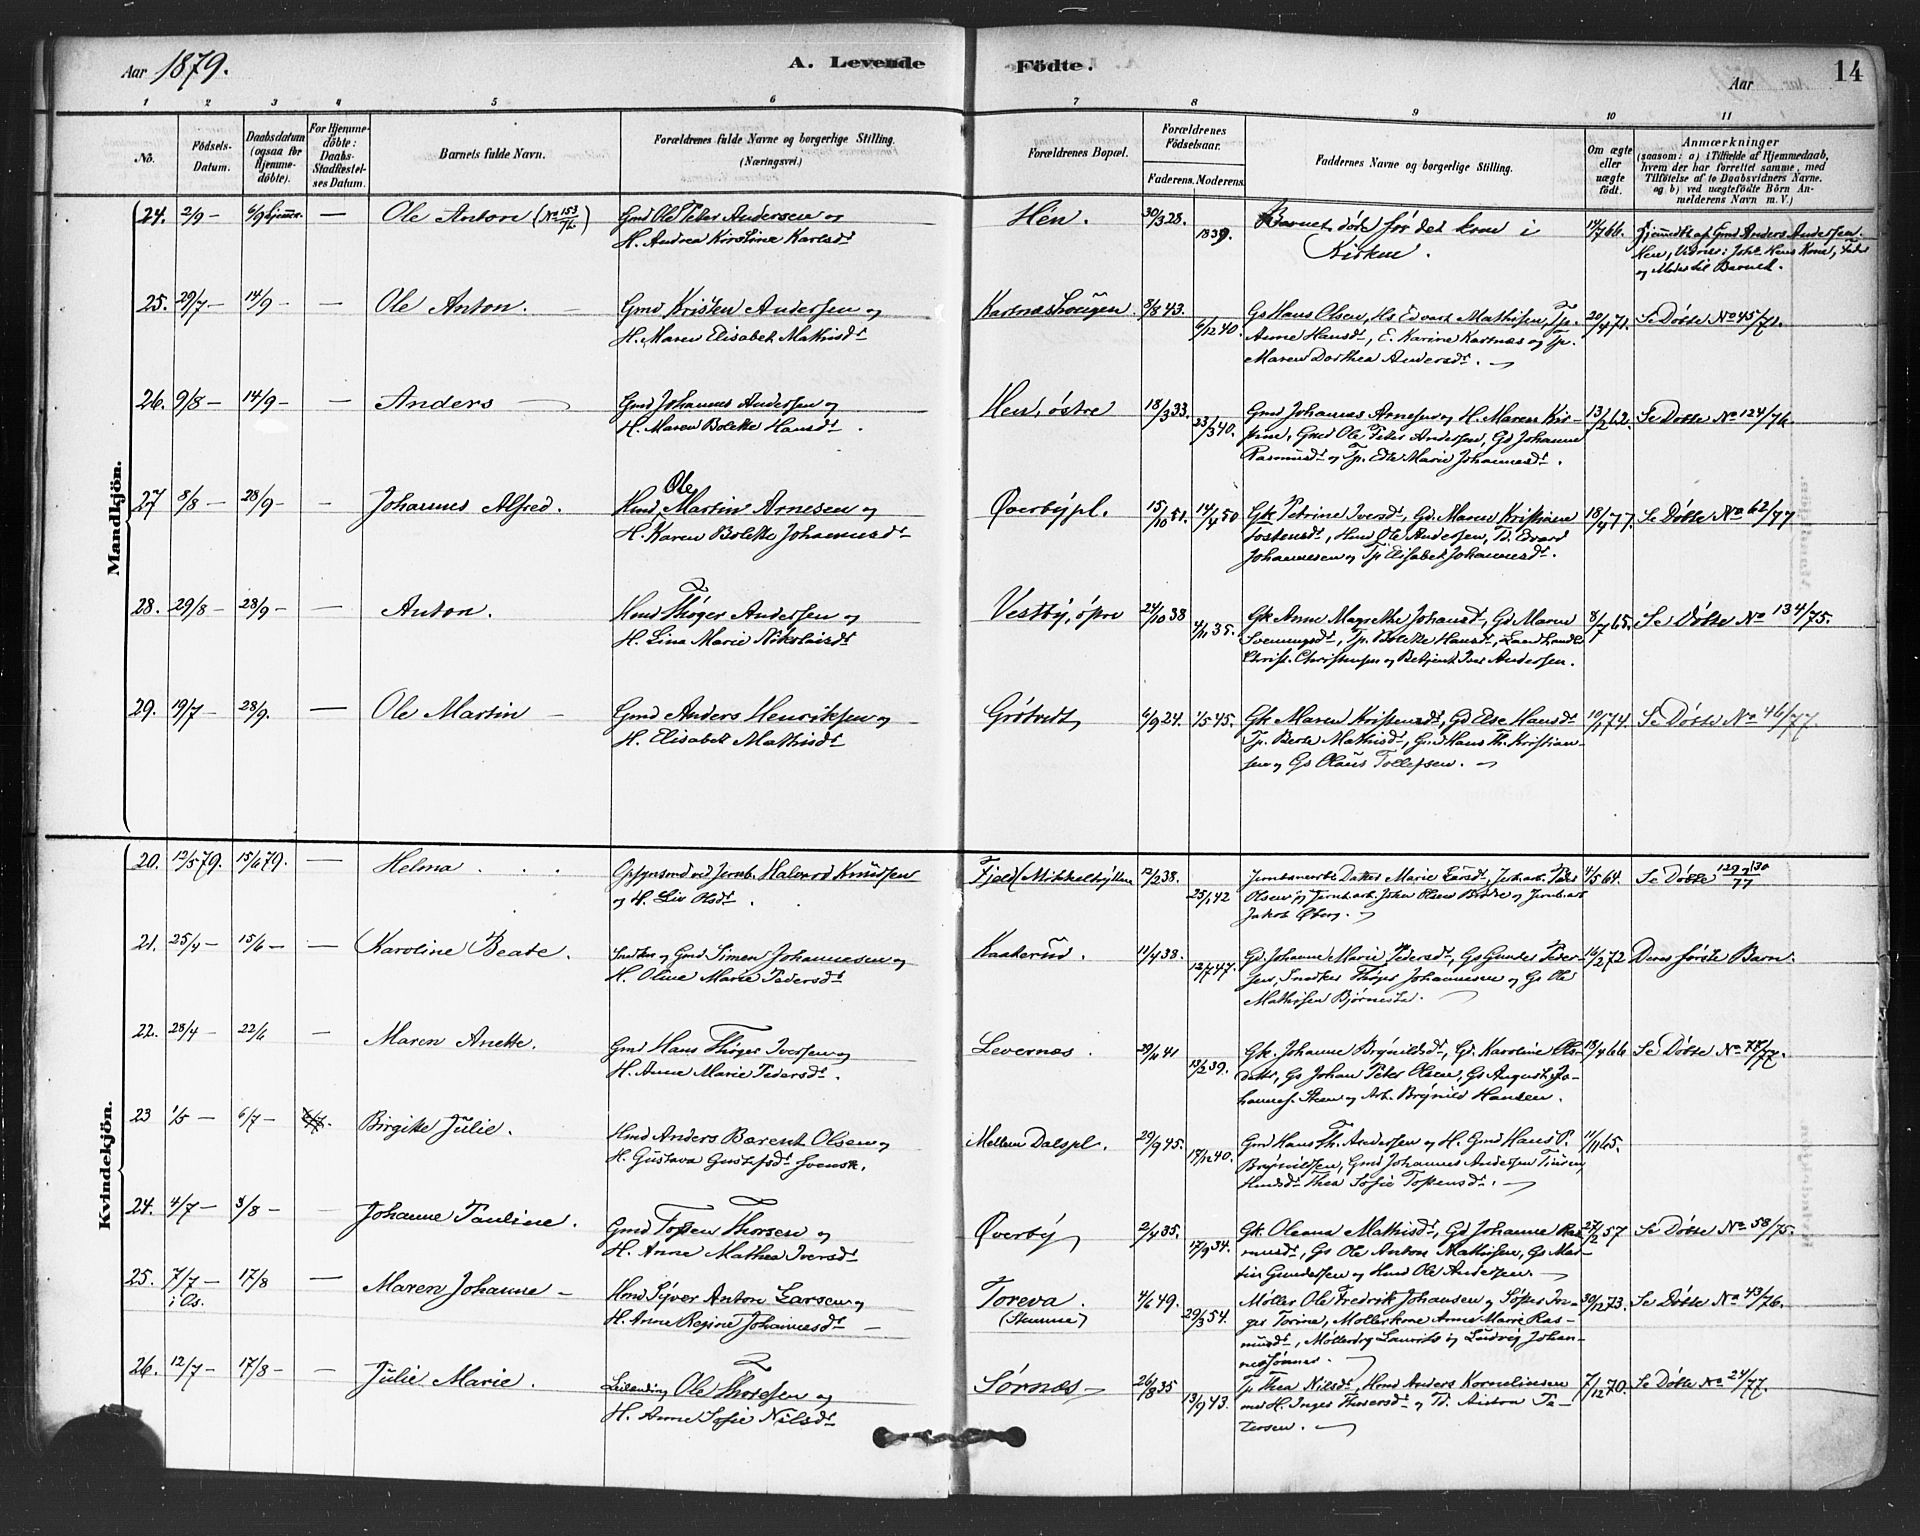 Aar 1879.
A. Levende
Födte.
Aar
14
1 2 3 4 5 6 7 8 9 10 11
No.
Födsels-
Datum.
Daabsdatum
(ogsaa for
Hjemme-
döbte).
For Hjemme-
döbte:
Daabs-
Stadfæstel-
ses Datum.
Barnets fulde Navn.
Forældrenes fulde Navne og borgerlige Stilling.
(Næringsvei.)
Forældrenes Bopæl.
Forældrenes
Födselsaar.
Faderens. Moderens.
Faddernes Navne og borgerlige Stilling.
Om ægte
eller
uægte
födt.
Anmærkninger
(saasom: a) i Tilfælde af Hjemmedaab,
hvem der har forrettet samme, med
Tilföielse af to Daabsvidners Navne.
og b) ved uægtefödte Börn An-
melderens Navn m. V.)
Mandkjön.
24. 2/9 — 6/9 hjemme. — Ole Anton (No 153/72) Gmd Ole Peter Andersen og
H. Andrea Kirstine Karlsdt
Hén. 30/3 28. 1839. Barnet døde før det kom i
Kirken.
14/7 66. Hjemmedt af Gmd Anders Andersen
Hen, Vidner: Johs Hens Kone, Fader
og Moder til Barnet.
25. 29/7 — 14/9 — — Ole Anton. — Gmd Kristen Andersen og
H. Maren Elisabet Mathisdt
8/8 43. 6/12 40. Gs Hans Olsen, Hs Edvart Mathisen, Tp.
Anne Hansdt, E. Karine Kartnæs og Tp.
Maren Dorthea Andersdt. —
20/4 71. Se Døbte No 45/71.
26. 9/8 — 14/9 — — Anders — Gmd Johannes Andersen og
H. Maren Bolette Hansdt.
Hen, østre 18/3 33. 23/3 40. Gmd Johannes Arnesen og H. Maren Kir-
stine, Gmd Ole Peter Andersen, Gd Johanne
Rasmusdt og Tp. Edte Marie Johannesdt.
13/2 62. Se Døbte No 124/76.
27 8/8 — 28/9 — — Johannes Alfred. Hmd Ole Martin Arnesen og
H. Karen Bolette Johannesdt
Øverbÿpl. 15/10 51. 14/4 50 Gk Petrine Iversdt, Gd. Maren Kristiane
Tostensdt, Hmd Ole Andersen, Td. Evard
Johannesen og Tp Elisabet Johannesdt.
18/4 77. Se Døbte No 62/77.
28. 29/8 — 28/9 — — Anton. Hmd Thøger Andersen og
H. Lina Marie Nikolaisdt
Vestbÿ, øpre 24/10 38 4/11 35. Gk Anne Magrethe Johansdt, Gd Maren
Svenningsdt, Tp. Bolette Hansdt, Landhandler
Christ. Christensen og Betjent Iver Andersen.
8/7 65. Se Døbte No 134/75.
29. 19/7 — 28/9. — Ole Martin — Gmd Anders Henriksen og
H. Elisabet Mathisdt
Grøtvedt, 6/9 24. 1/5 45. Gk Maren Kristensdt, Gd Else Hansdt
Tp. Berte Mathisdt, Gmd Hans Th. Kristian-
sen og Gs Olaus Tollefsen. —
10/1 74. Se Døbte No 46/77.
Kvindekjön.
20. 12/5 79. 15/6 79. — Helma . . . Opsynsmd ved Jernb. Halvord Knudsen
og H. Liv Olsdt.
12/2 38. 25/1 42 Jernbanearb. Datter Marie Larsdt, Jernb.arb. Peder
Olsen og Jernb.arb. Johan Olsen Brodre og Jernb.arb
Jakob Øberg. —
4/5 64. Se Døbte 129 og 130/77
21. 25/4 — 15/6 — — Karoline Beate. Snedker og Gmd Simen Johannesen og
H. Oline Marie Pedersdt
Kaaterud. 11/4 38. 12/7 47. Gd. Johanne Marie Pedersdt, Gs Gunder Peder-
sen, Snedker Thøger Johannesen og Gs Ole
Mathisen Bjørnesta. —
16/2 72 Deres første Barn.
22. 28/4 — 22/6 — Maren Anette. Gmd Hans Thøger Iversen og
H. Anne Marie Pedersdt.
Levernæs. 29/11 41 13/2 39. Gk. Johanne Brÿnildsdt, Gd. Karoline Ols-
datter, Gs Johan Peter Olsen, Gs August Jo-
hannes. Steen og Arb. Brÿnild Hansen.
18/4 66 Se Døbte No 77/77.
23 1/5 — 6/7 — Birgitte Julie. Hmd Anders Barent Olsen og
H. Gustava Gustafsdt Svensk.
Mellem Dalspl. 29/9 45. 17/12 40. Gmd Hans Th. Andersen og H. Gmd Hans P.
Brÿnildsen, Gmd Johannes Andersen
Hmdsdt Thea Sofie Tostensdt. —
11/11 65.
24. 4/7 — 3/8 — Johanne Pauline. Gmd Tosten Thorsen og
H. Anne Mathea Iversdt
Øverbÿ 2/4 35. 17/9 34. Gk. Oleana Mathisdt, Gd Johanne Ras-
musdt, Gs Ole Anton Mathisen, Gs Mar-
tin Gundersen og Hmd Ole Andersen. —
27/2 57 Se Døbte No 58/75.
25. 7/7 — 17/8 — Maren Johanne — Hmd Sÿver Anton Larsen og
i Os. H. Anne Regine Johannesdt —
Toreva. 4/6 49. 29/3 54. Møller Ole Fredrik Johansen og Søster In-
ger Torine, Møllerkone Anne Marie Ras-
musdt, Møllerdrg Laurits og Ludvig Johan-
nessønner. —
30/12 73. Se Døbte No 43/76.
26. 12/7 — 17/8 — — Julie Marie. Leilænding Ole Thoresen og
H. Anne Sofie Nilsdt
Sørnæs — 26/8 35 13/9 43. Tp Thea Nilsdt, Hmd Anders Kornelinsen
med H. Inger Thoresdt og Td. Anton Pe-
tersen. —
7/12 70. Se Døbte No 24/77.